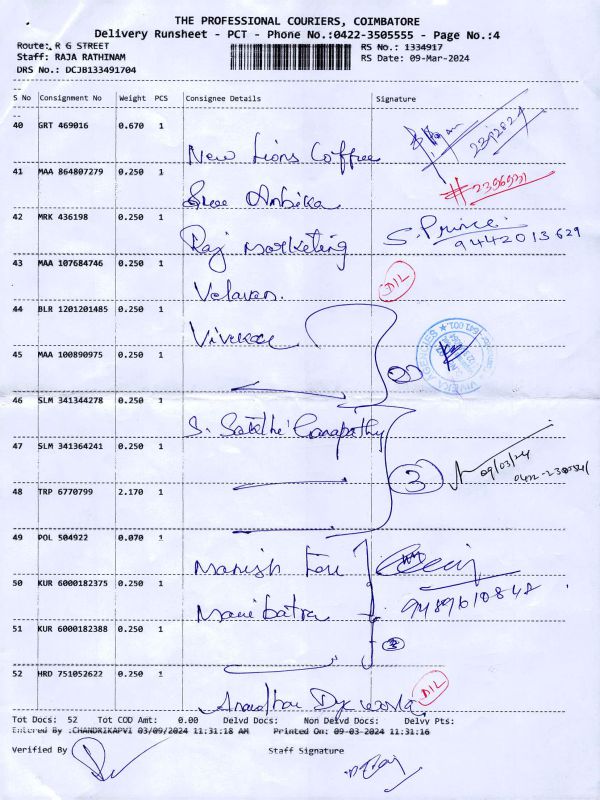 THE PROFESSIONAL COURIERS, COIMBATORE
Delivery Runsheet - PCT - Phone No.:0422-3505555 - Page No.:4
Route: R G STREET
RS No.: 1334917
Staff: RAJA RATHINAM
RS Date: 09-Mar-2024
DRS No.: DCJB133491704
S No Consignment No Weight PCS Consignee Details Signature
40 GRT 469016 0.670 1
New Lions Coffree
41 MAA 864807279 0.250 1
Sree Ambika
42 MRK 436198 0.250 1
Raj marketing S. Prince.
9442013629
43 MAA 107684746 0.250 1
Velavan. DIL
44 BLR 1201201485 0.250 1
45 MAA 100890975 0.250 1
2
46 SLM 341344278 0.250 1
S. Ganapathy
47 SLM 341364241 0.250 1
3 09/03/24
48 TRP 6770799 2.170 1
49 POL 504922 0.070 1
Manish
50 KUR 6000182375 0.250 1
51 KUR 6000182388 0.250 1
52 HRD 751052622 0.250 1
DIL
Tot Docs: 52 Tot COD Amt: 0.00 Delvd Docs: Non Delvd Docs: Delvy Pts:
Entered By :CHANDRIKAPVI 03/09/2024 11:31:18 AM Printed On: 09-03-2024 11:31:16
Verified By Staff Signature